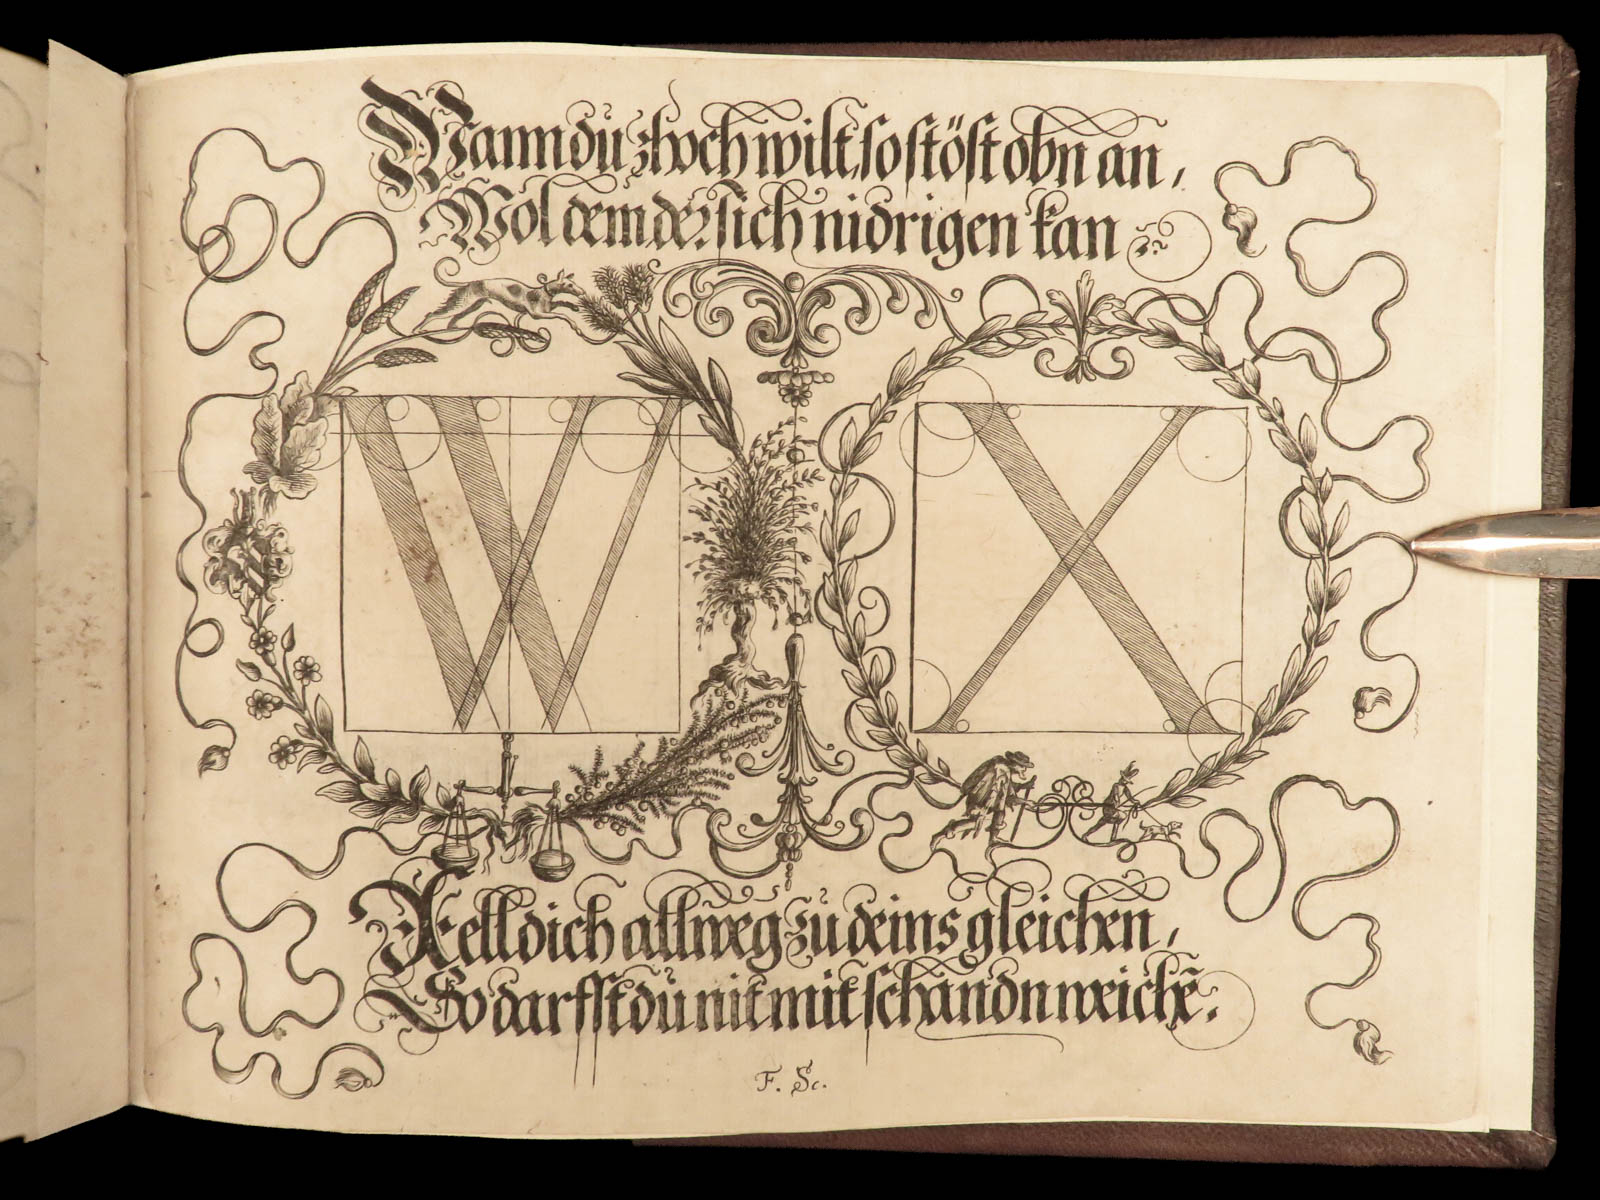 Wann du zhoch wilt, so stöst obn an,
Wol dem der sich nidrigen kan
W X
Xell dich allweg zu deins gleichen,
So darffst du nit mit schandn weichē.
F. Sc.